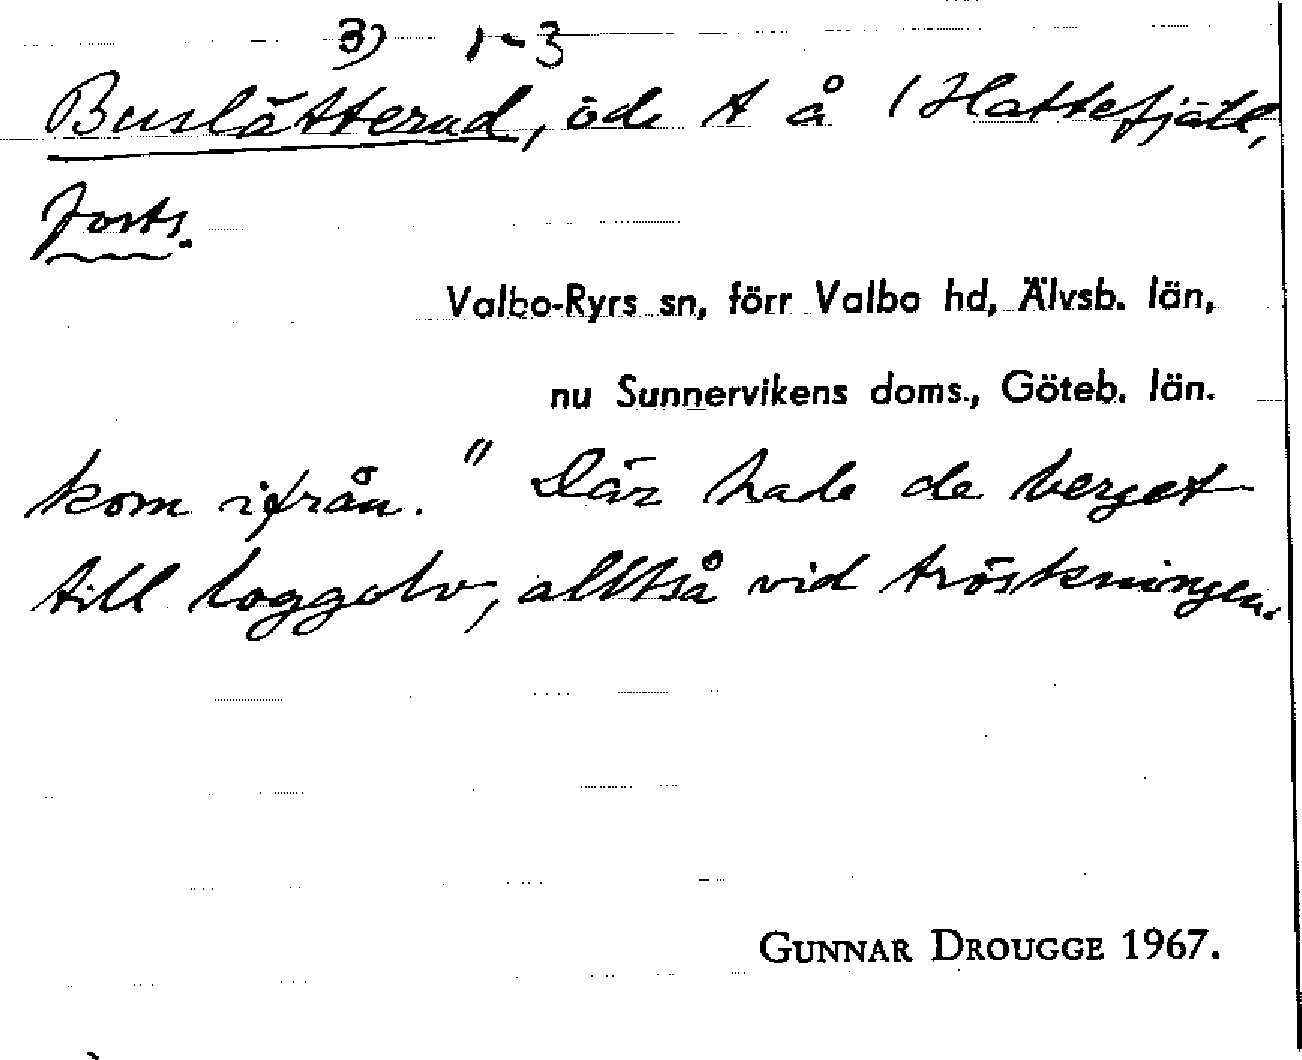 3) 1-3
Buslätterud, öde t å 1 Hattefjäll,
forts.
Valbo-Ryrs sn, förr Valbo hd, Älvsb. län,
nu Sunnervikens doms., Göteb. län.
kom ifrån." Där hade de berget
till loggolv, alltså vid tröskningen.
GUNNAR DROUGGE 1967.